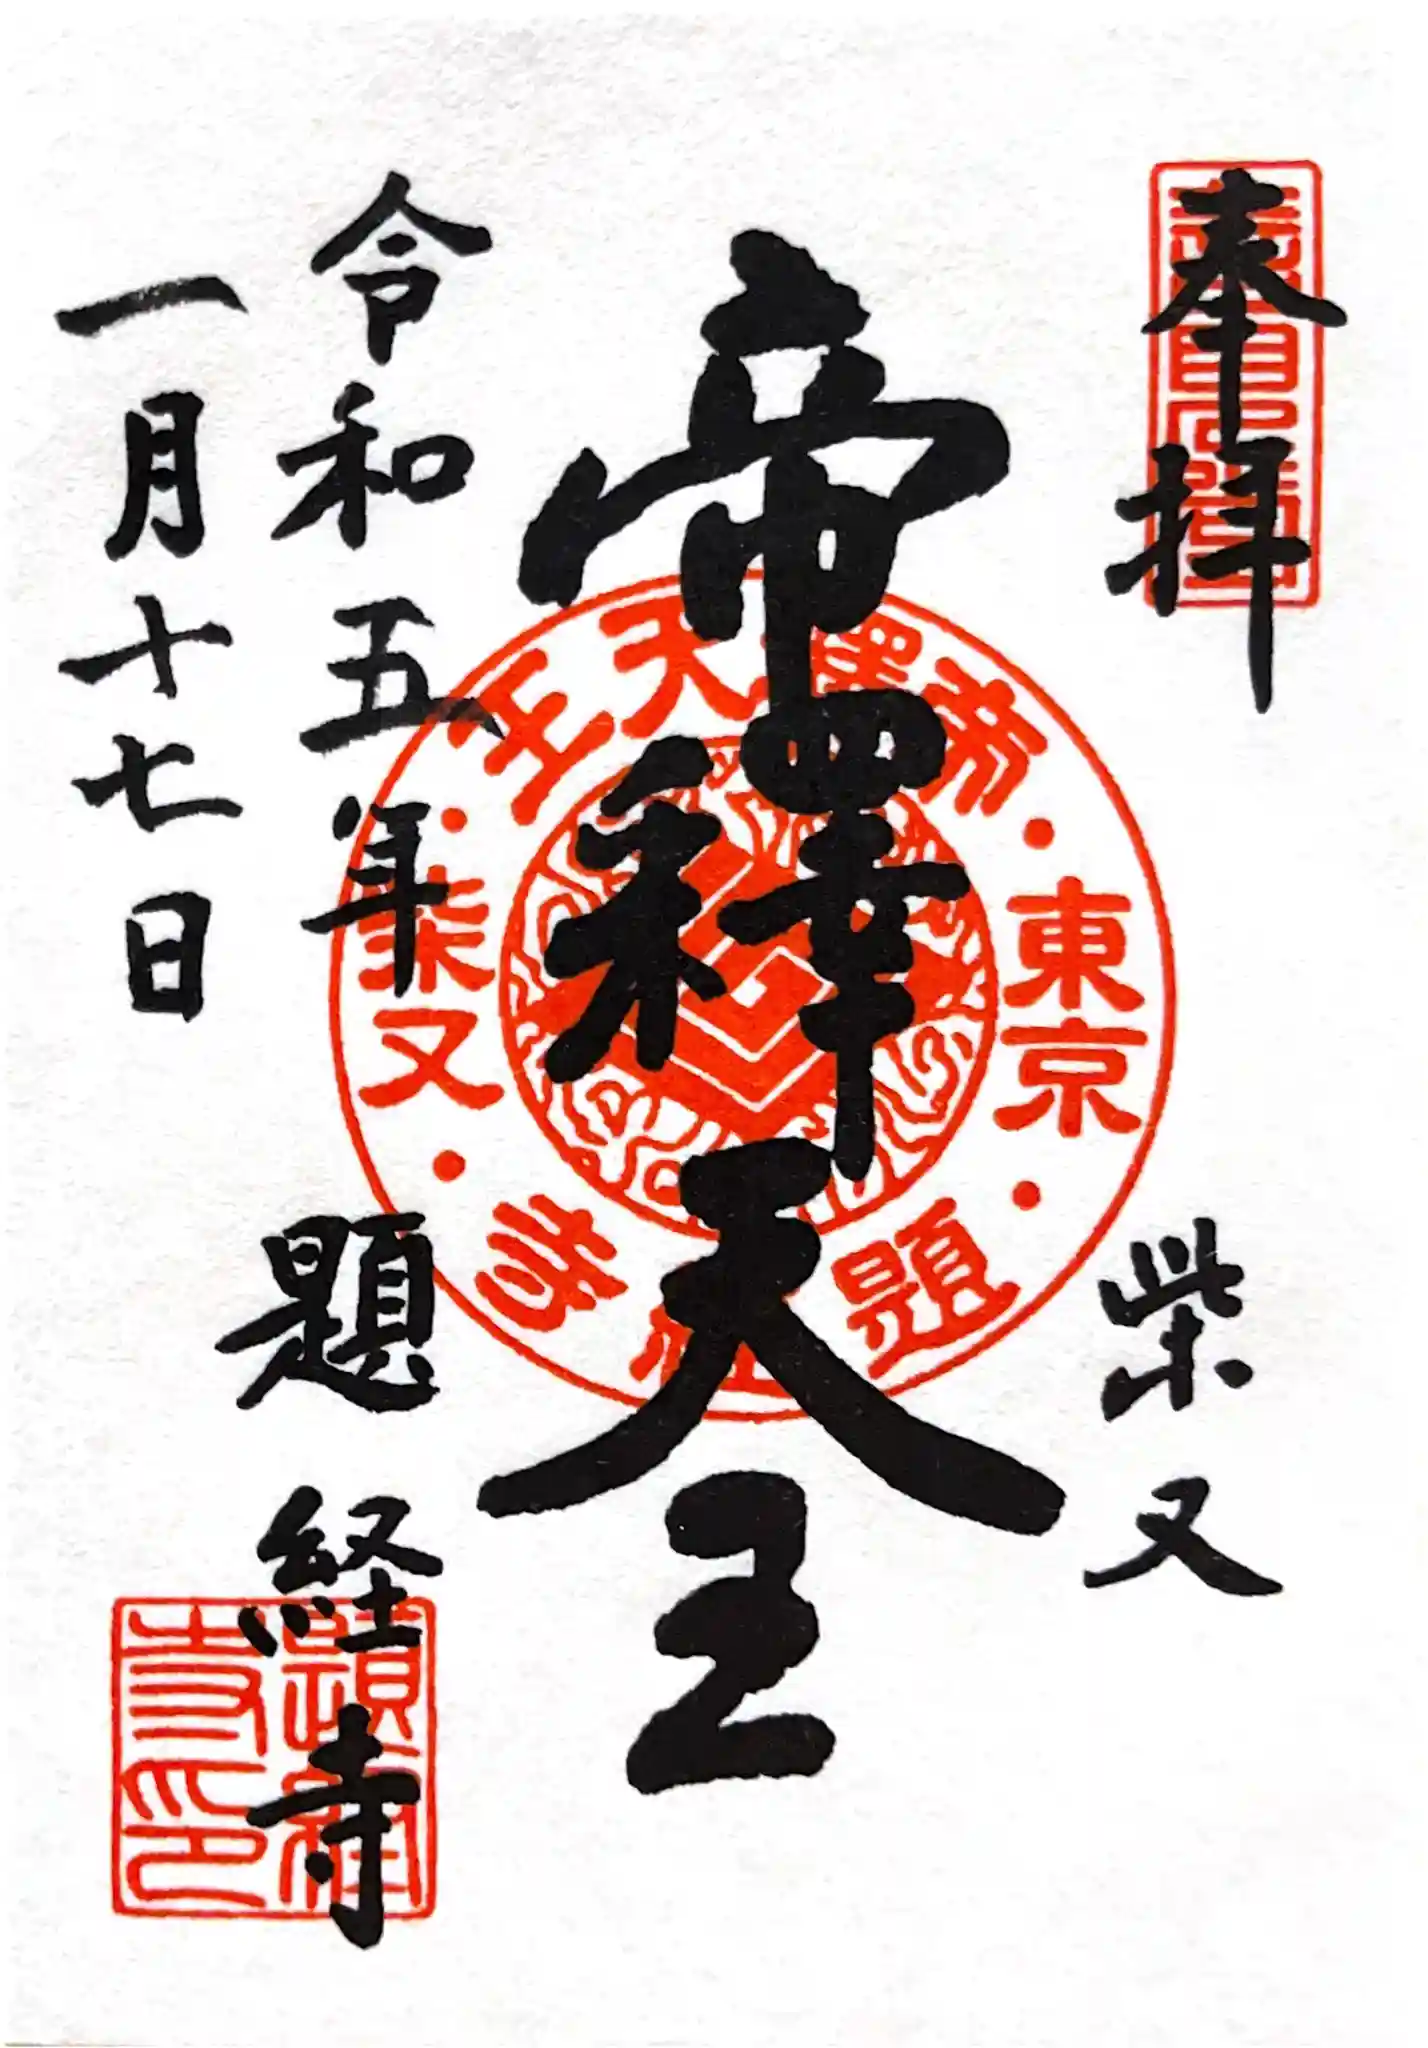 奉拝
柴又
帝釋天王
令和五年
一月十七日
題経寺
帝釋天王
東京
柴又
題経寺
題経寺印